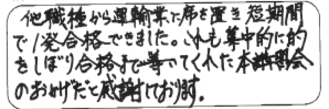 他職種から運輸業に席を置き短期間
で1発合格できました。これも集中的に的
をしぼり合格まで導いてくれた本講習会
のおかげだと感謝しております。